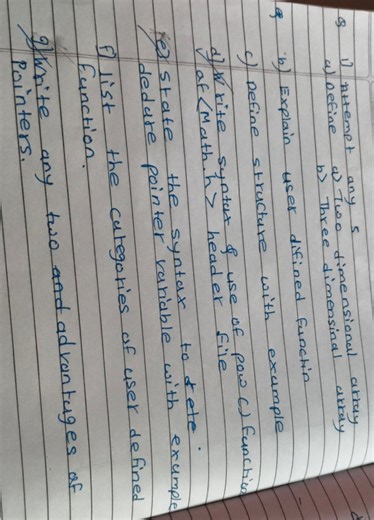 Q 1) Attempt any 5
a) Define a) Two dimensional array
b) Three dimensinal array
b) Explain user difined functin
c) Define structure with example
d) Write syntax & use of pow() function
of <Math.h> header file
e) state the syntax to
declare pointer variable with example
f) list the categories of user defined
function.
g) Write any two advantages of
Pointers.